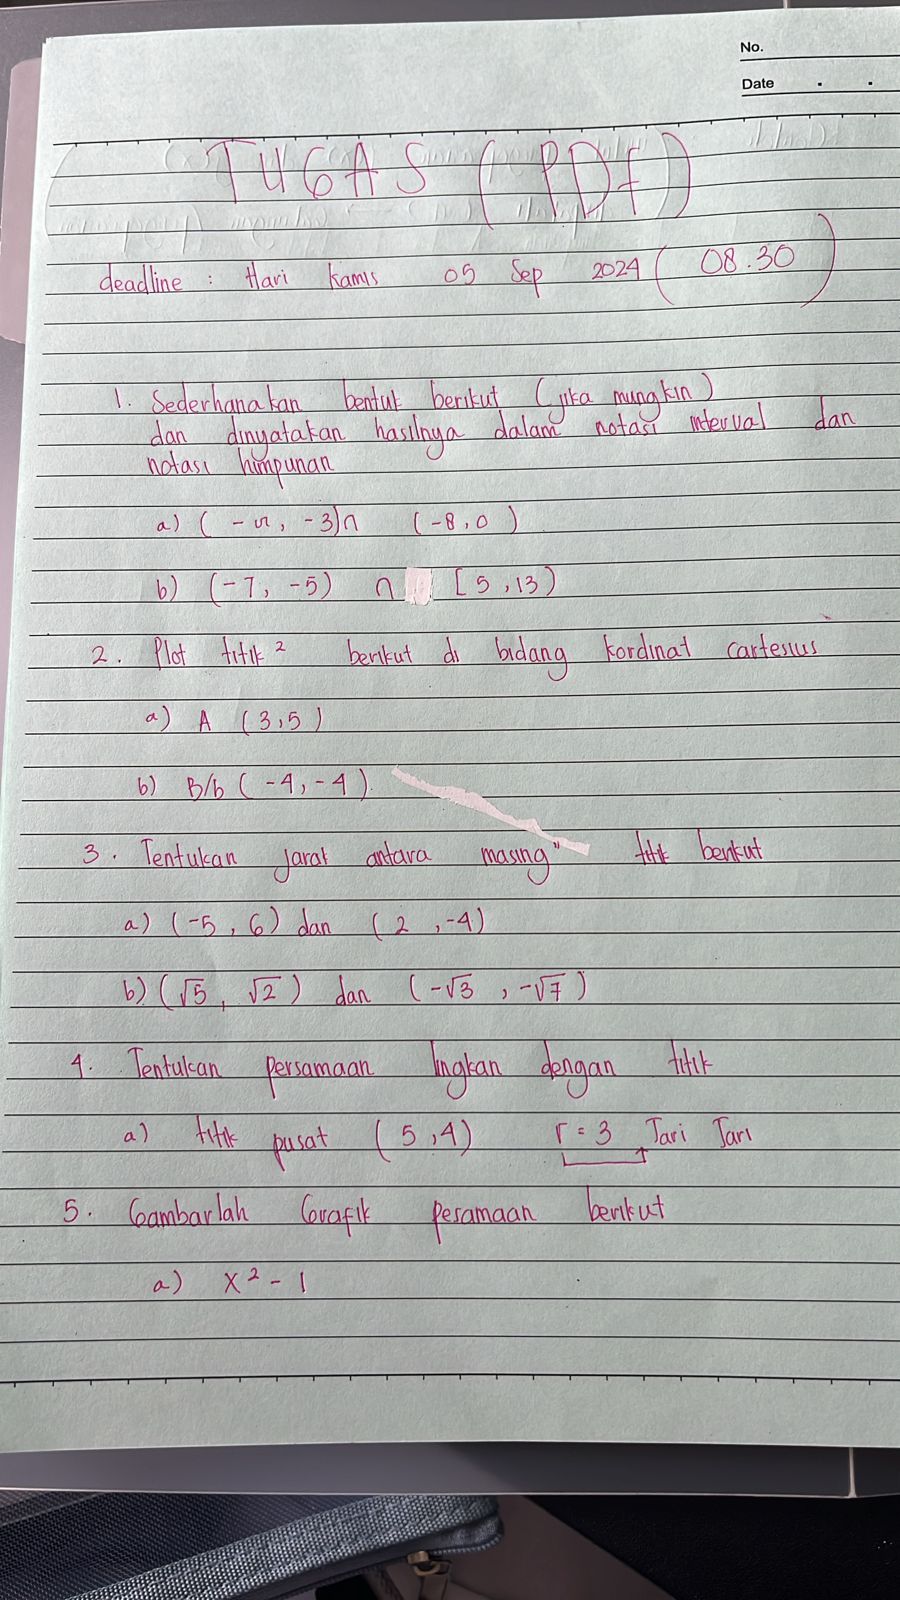 No.
Date
TUGAS ( PDf )
deadline : Hari Kamis 05 Sep 2024 ( 08.30 )
1. Sederhanakan bentuk berikut (jika mungkin)
dan dinyatakan hasilnya dalam notasi interval dan
notasi himpunan
a) ( - ∞, -3) ∩ (-8,0 )
b) (-7, -5) ∩ [ 5 ,13 )
2. Plot titik ² berikut di bidang kordinat cartesius
a) A (3,5)
b) B/b ( -4, -4)
3. Tentukan jarak antara masing" titik berikut
a) (-5, 6) dan ( 2 , -4)
b) (√5, √2 ) dan ( -√3 , -√7 )
4. Tentukan persamaan lingkan dengan titik
a) titik pusat ( 5 ,4) r = 3 Jari Jari
5. Gambarlah Grafik pesamaan berikut
a) x² - 1